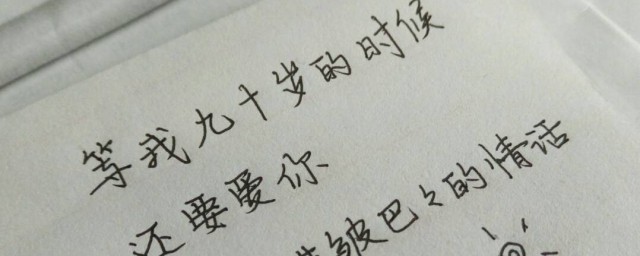 等我九十岁的时候
还要爱你
皱巴々的情话